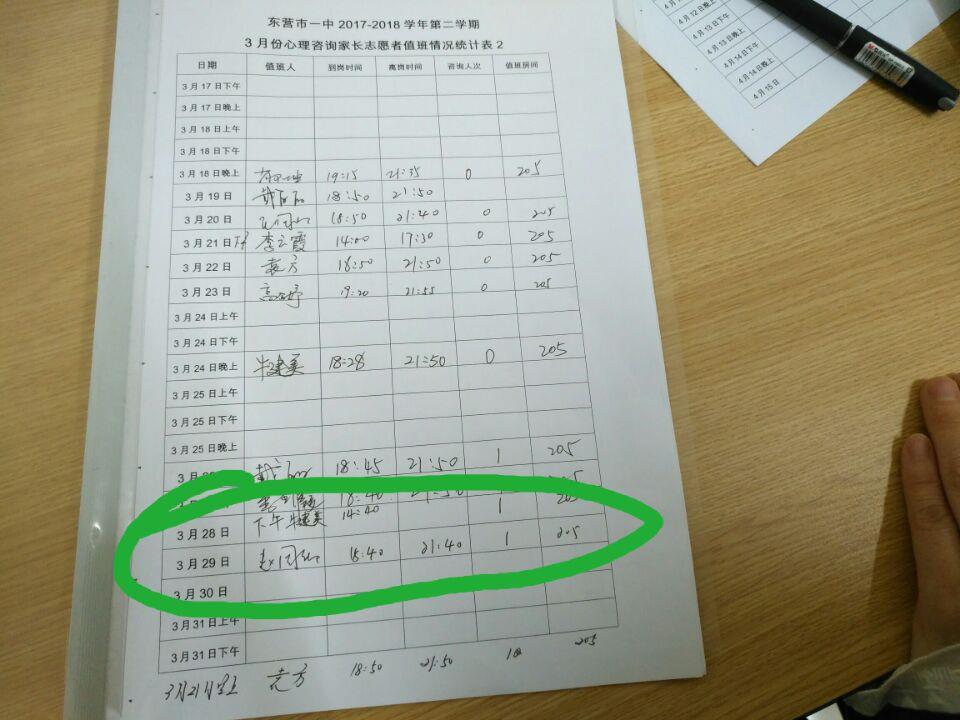 东营市一中 2017-2018 学年第二学期
3 月份心理咨询家长志愿者值班情况统计表 2
日期 值班人 到岗时间 离岗时间 咨询人次 值班房间
3 月 17 日下午
3 月 17 日晚上
3 月 18 日上午
3 月 18 日下午
3 月 18 日晚上 19:15 21:35 0 205
3 月 19 日 18:50 21:50
3 月 20 日 18:50 21:40 0 205
3 月 21 日下午 李云霞 14:00 17:30 0 205
3 月 22 日 袁方 18:50 21:50 0 205
3 月 23 日 19:20 21:55 0 205
3 月 24 日上午
3 月 24 日下午
3 月 24 日晚上 牛建美 18:28 21:50 0 205
3 月 25 日上午
3 月 25 日下午
3 月 25 日晚上
18:45 21:50 1 205
18:40 21:50 205
3 月 28 日 下午 牛建美 14:40 1 205
3 月 29 日 18:40 21:40 1 205
3 月 30 日
3 月 31 日上午
3 月 31 日下午
3月21日晚上 袁方 18:50 21:50 205
4 月 12 日晚上
4 月 13 日
4 月 13 日晚上
4 月 14 日下午
4 月 14 日晚上
4 月 15 日